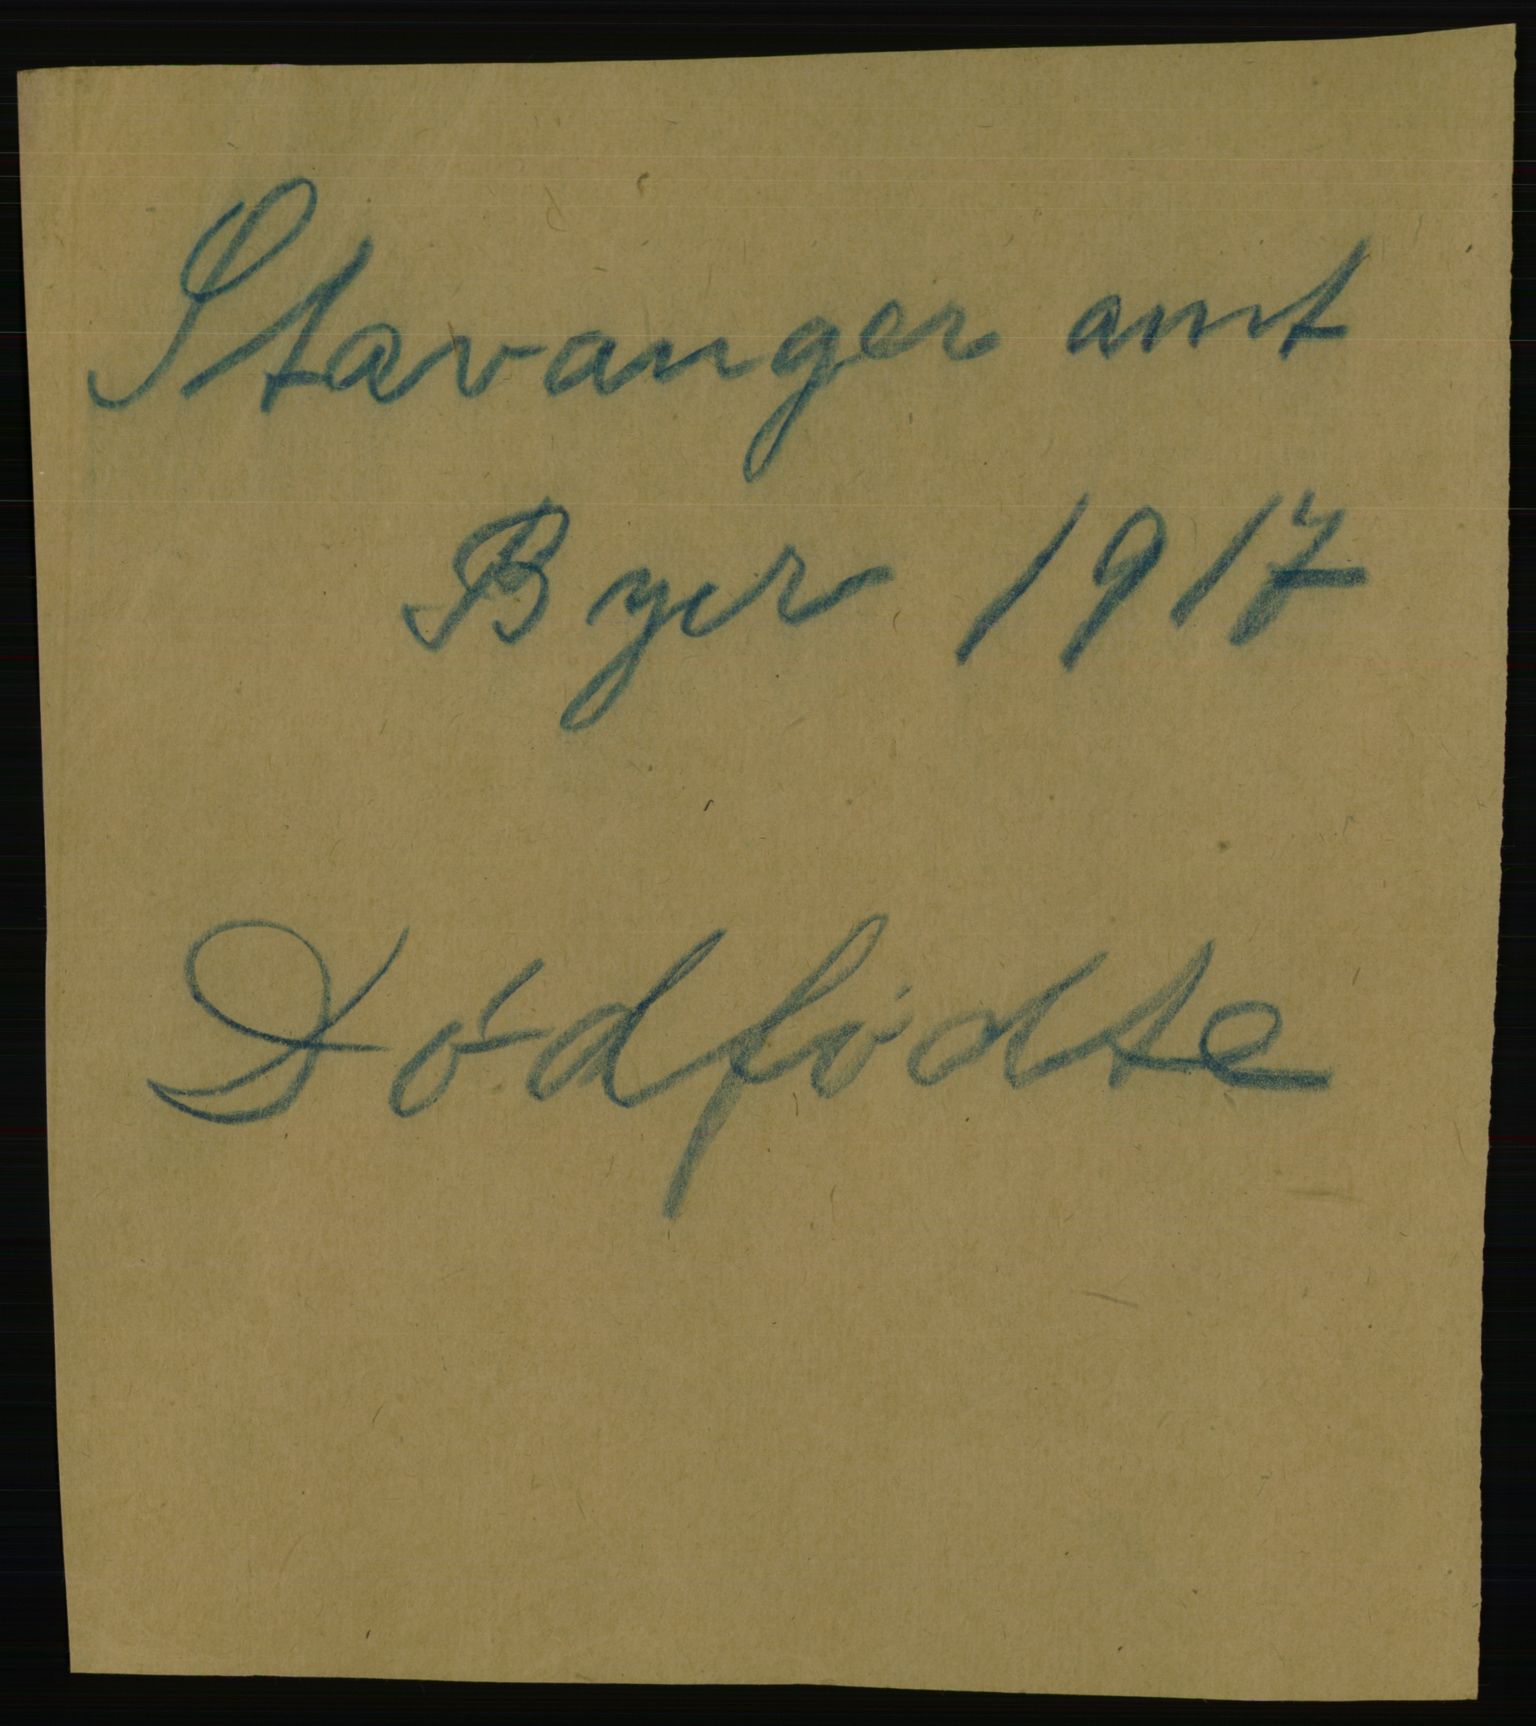 Stavanger amt
Byer 1917
Dødfødte